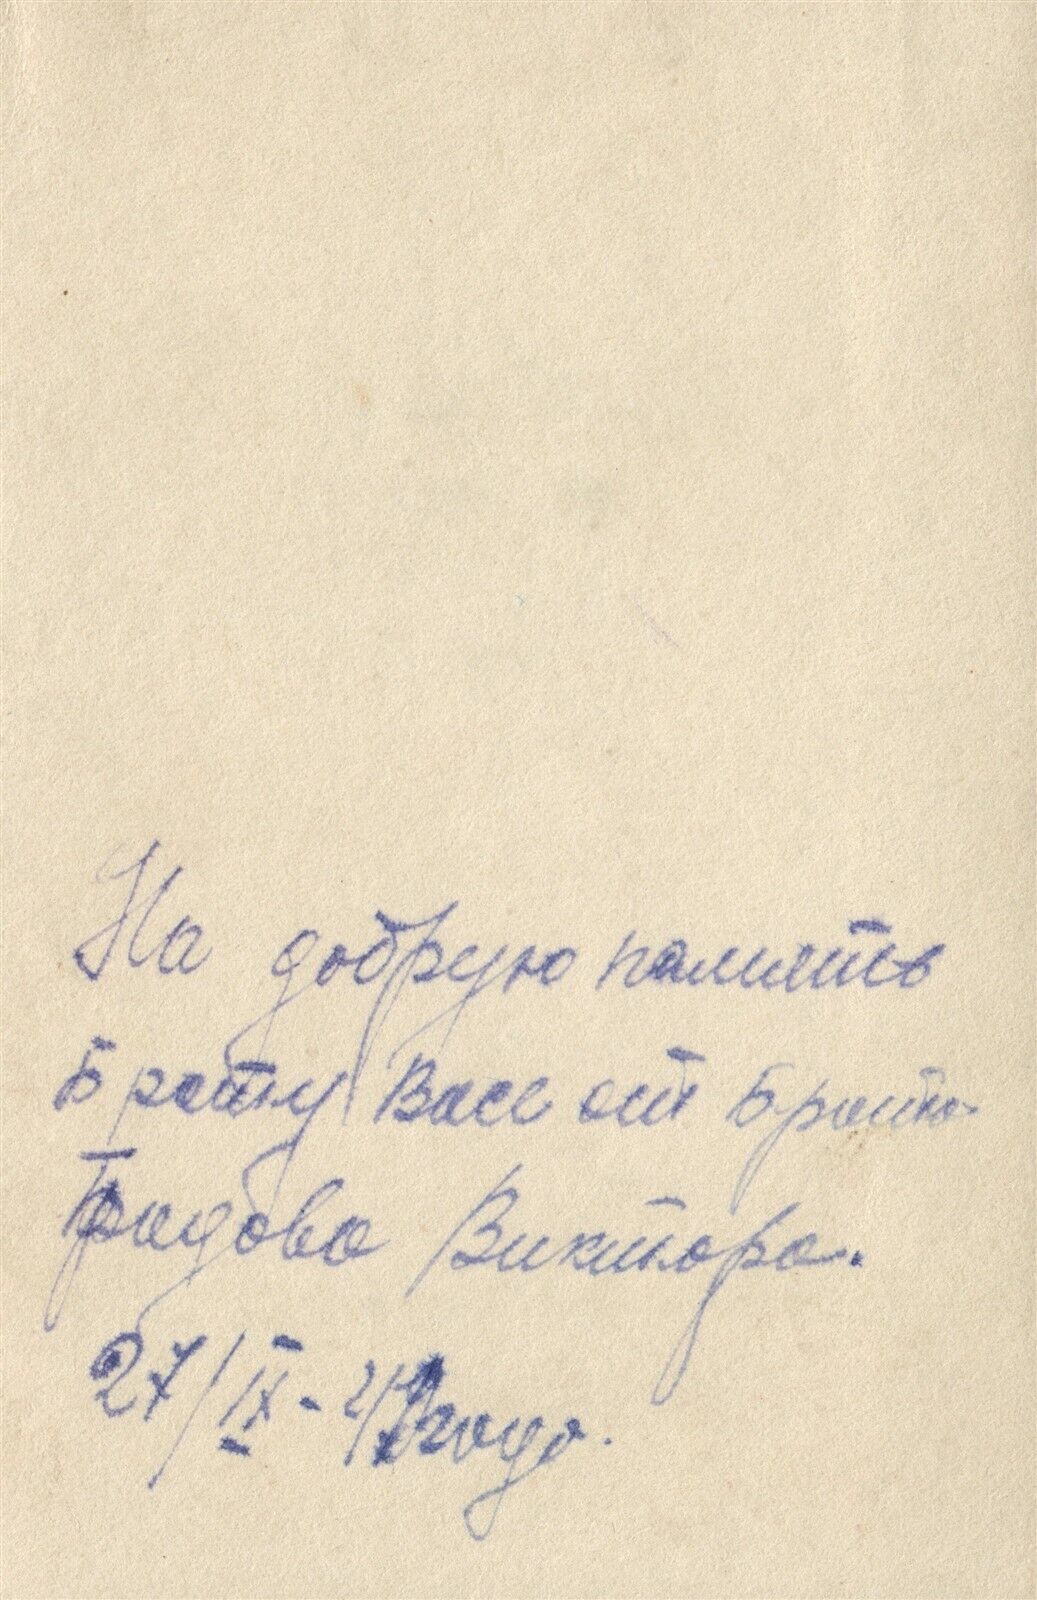 На добрую память
Брату Васе от брата
Градова Виктора.
27/IX-49 года.